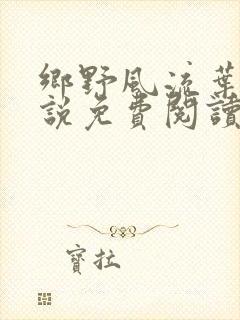 鄉野風流葉
說免費閱讀
寶拉